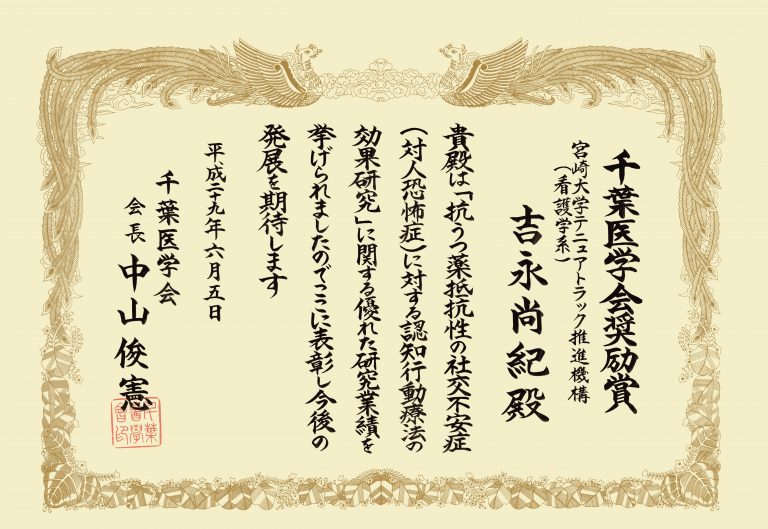 千葉医学会奨励賞
宮崎大学テニュアトラック推進機構
（看護学系）
吉永尚紀殿
貴殿は「抗うつ薬抵抗性の社交不安症
（対人恐怖症）に対する認知行動療法の
効果研究」に関する優れた研究業績を
挙げられましたのでここに表彰し今後の
発展を期待します
平成二十九年六月五日
千葉医学会
会長 中山俊憲
千葉
医学
会印